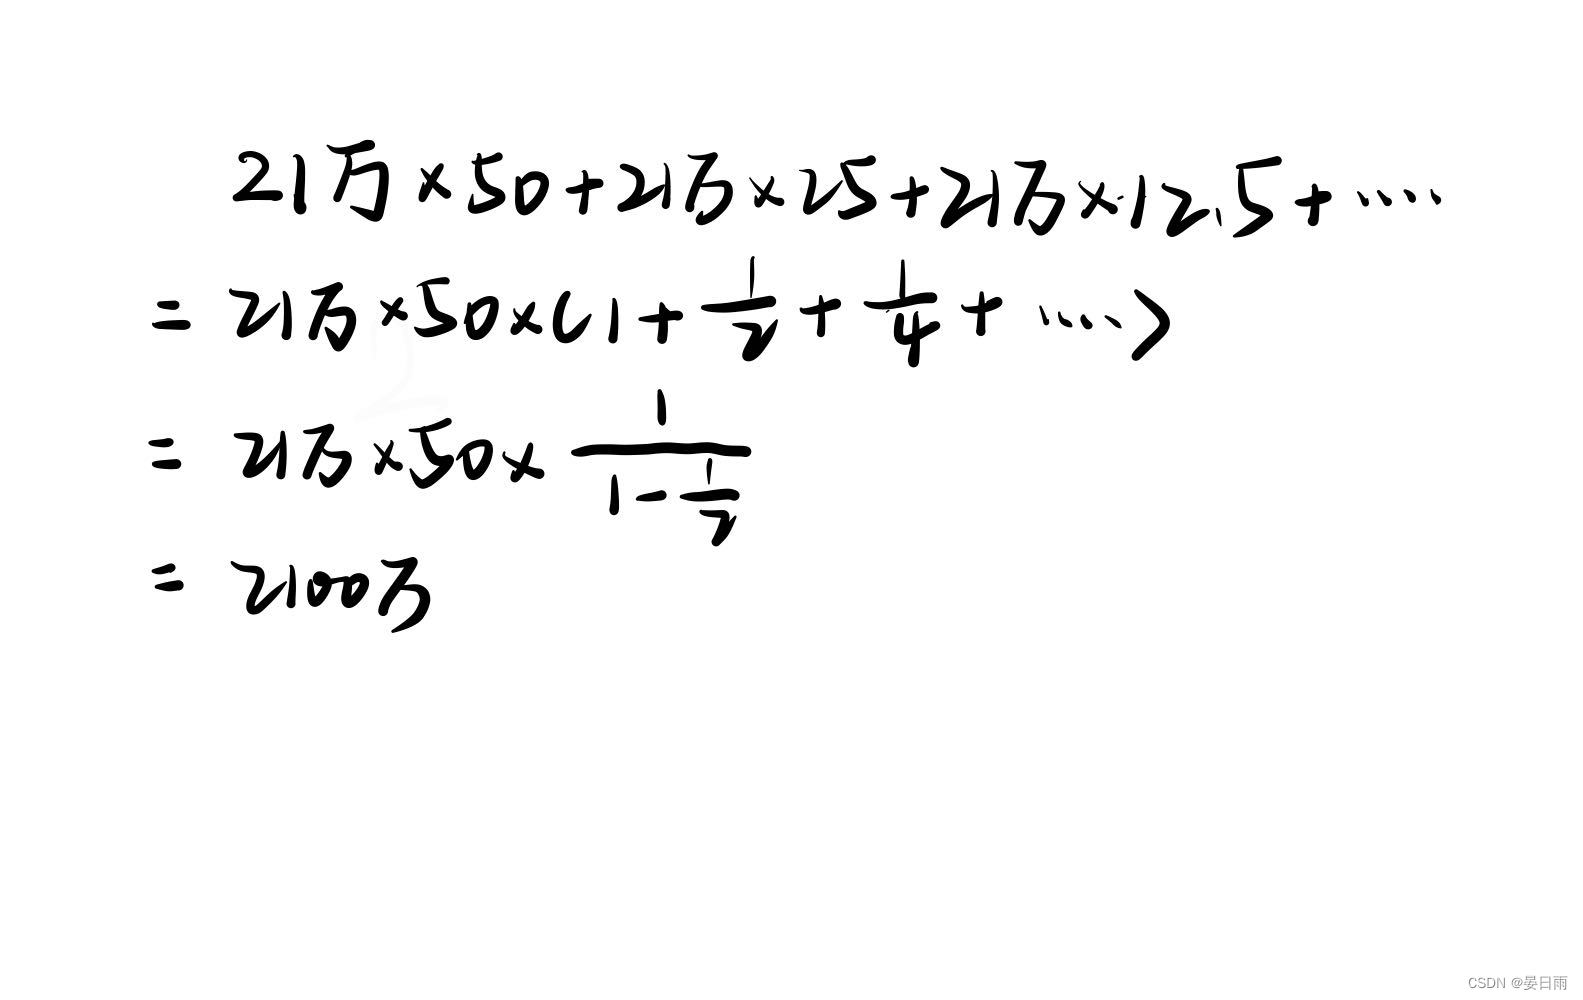 21万×50+21万×25+21万×12.5+……
=21万×50×(1+1/2+1/4+……)
=21万×50×1/(1-1/2)
=2100万
CSDN @晏日雨